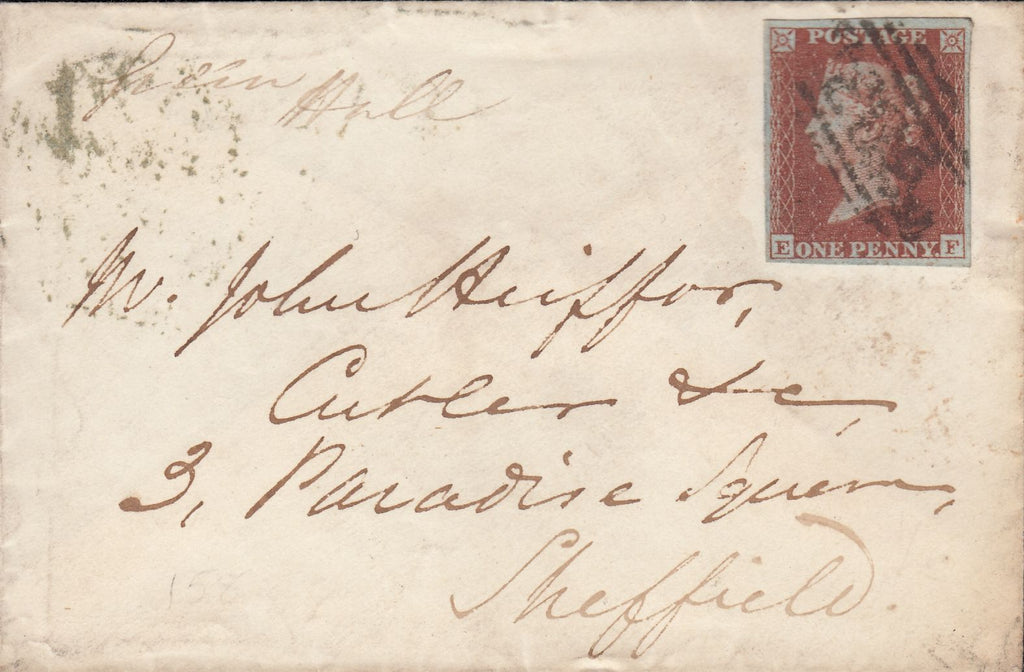 POSTAGE
1
Green
Hall
E ONE PENNY. F
Mr. John Heiffor,
Cutler &c,
3, Paradise Square,
Sheffield.